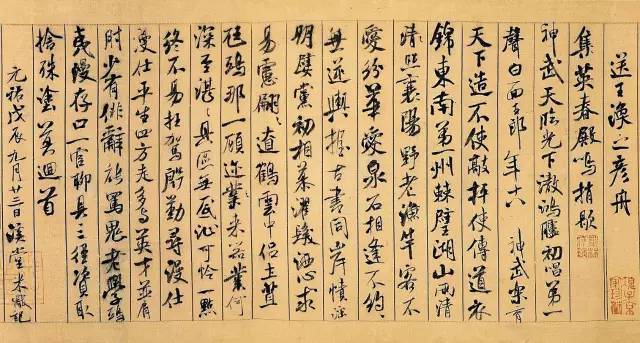 送王渙之彥舟
集英春殿鳴捎歇
神武天臨光下澈鴻臚初唱第一
聲白面王郎年十八神武樂育
天下造不使敲枰使傳道衣
錦東南第一州棘璧湖山兩清
照襄陽野老漁竿客不
愛紛華愛泉石相逢不約約
無逆輿握古書同岸幘淫
朋嬖黨初相慕濯髮灑心求
易慮翩翩遼鶴雲中侶土苴
尪鴟那一顧邇來器業何
深至湛湛具區無底沚可憐一點
終不易枉駕殷勤尋漫仕
漫仕平生四方走多與英才並肩
肘少有俳辭能罵鬼老學鴟
夷漫存口一官聊具三徑資取
捨殊塗莫迴首
元祐戊辰九月廿三日溪堂米黻記